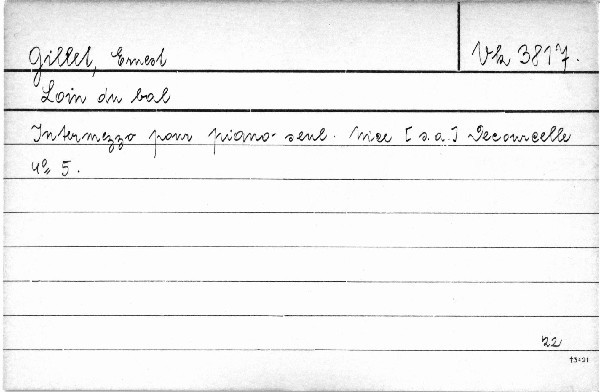 Gillet, Ernest
Vh 3817.
Loin du bal
Intermezzo pour piano-seul. Nice [s.a.] Decourcelle
no 5.
22